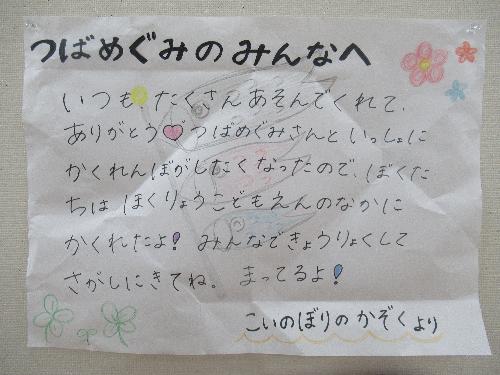 つばめぐみのみんなへ
いつもたくさんあそんでくれて、
ありがとう♡つばめぐみさんといっしょに
かくれんぼがしたくなったので、ぼくた
ちはほくりょうこどもえんのなかに
かくれたよ! みんなできょうりょくして
さがしにきてね。 まってるよ!
こいのぼりのかぞくより